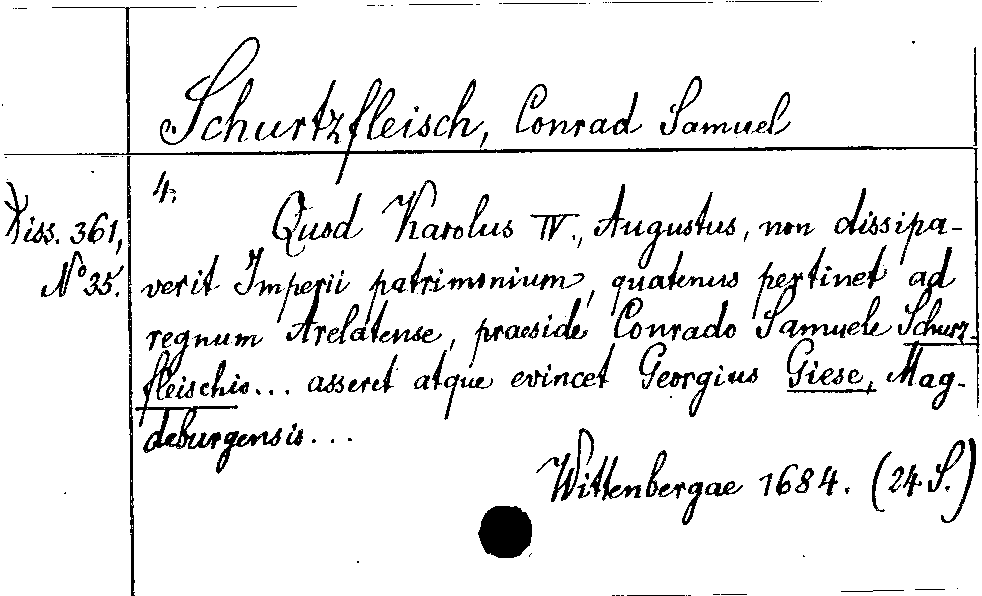 Schurtzfleisch, Conrad Samuel
4.
Diss. 361,
No 35.
Quod Karolus IV., Augustus, non dissipa-
verit Imperii patrimonium, quatenus pertinet ad
regnum Arelatense, praeside Conrado Samuele Schurz-
fleischio... asseret atque evincet Georgius Giese, Mag-
deburgensis...
Wittenbergae 1684. (24 S.)